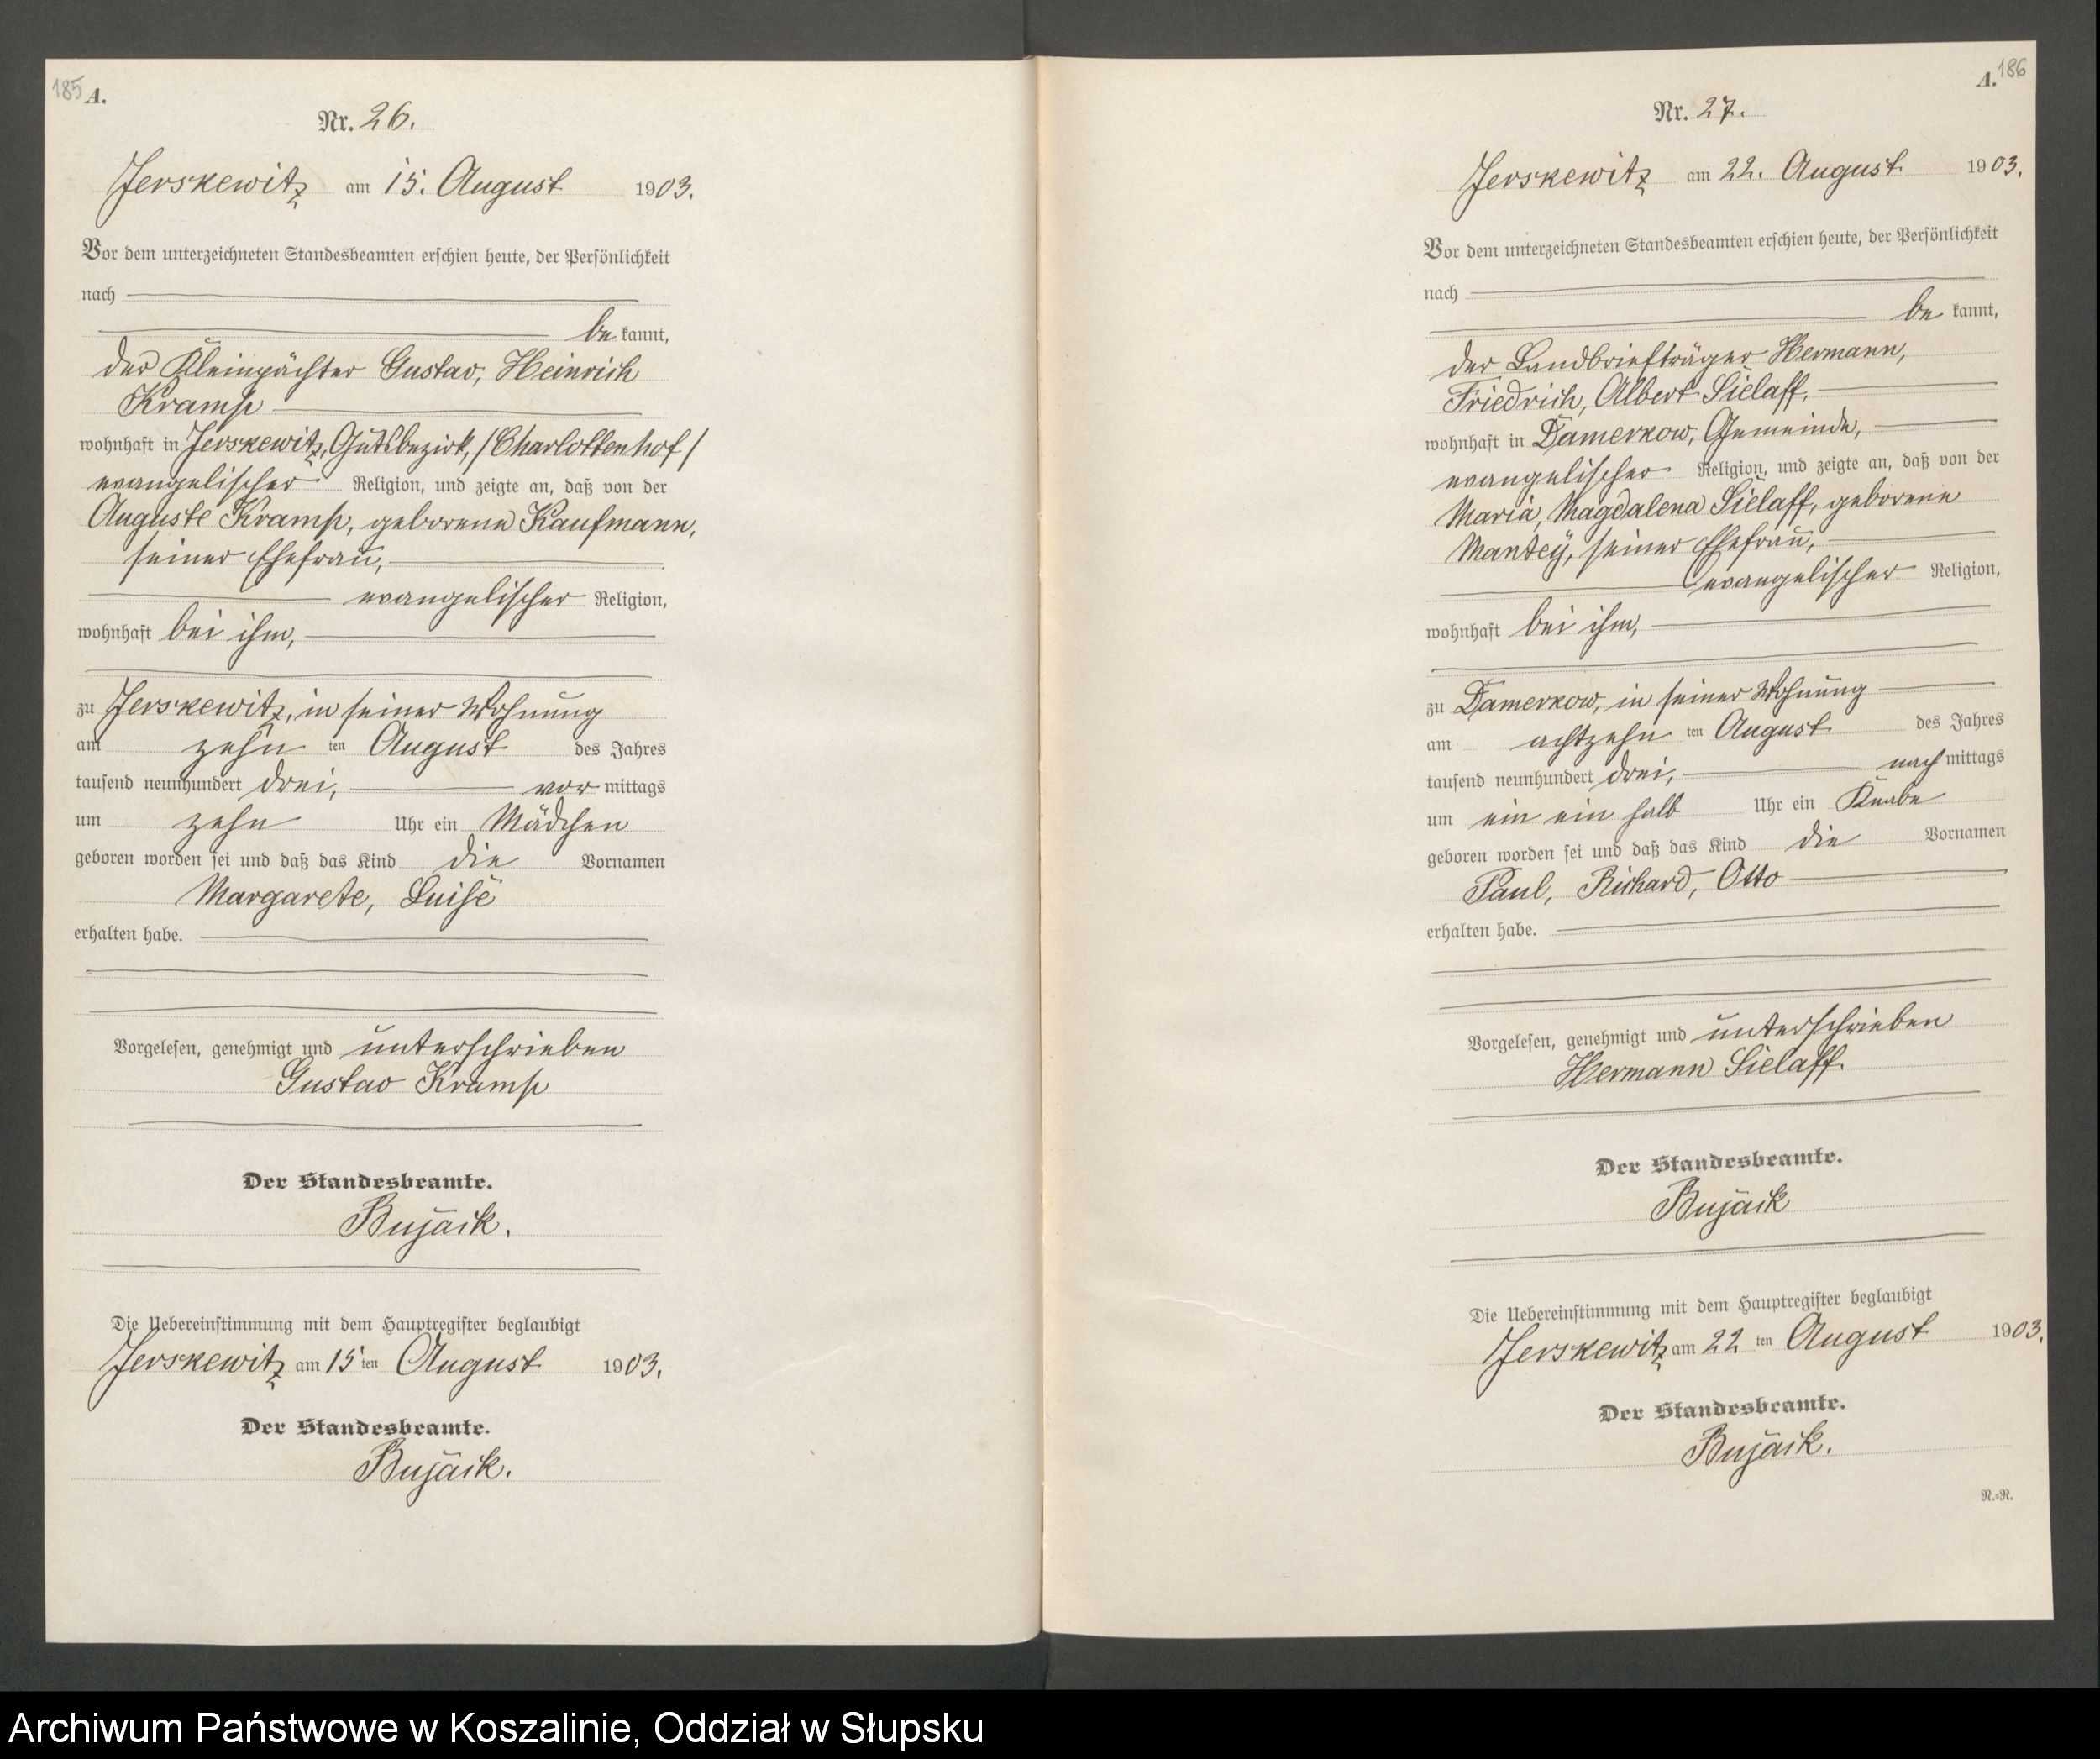 185 A.
Nr. 26.
Jerskewitz am 15. August 1903.
Vor dem unterzeichneten Standesbeamten erschien heute, der Persönlichkeit
nach
be kannt,
der Kleinpächter Gustav, Heinrich
Kramp
wohnhaft in Jerskewitz, Gutsbezirk, /Charlottenhof/
evangelischer Religion, und zeigte an, daß von der
Auguste Kramp, geborene Kaufmann,
seiner Ehefrau,
evangelischer Religion,
wohnhaft bei ihm,
zu Jerskewitz, in seiner Wohnung
am zehn ten August des Jahres
tausend neunhundert drei, vor mittags
um zehn Uhr ein Mädchen
geboren worden sei und daß das Kind die Vornamen
Margarete, Luise
erhalten habe.
Vorgelesen, genehmigt und unterschrieben
Gustav Kramp
Der Standesbeamte.
Bujack.
Die Uebereinstimmung mit dem Hauptregister beglaubigt
Jerskewitz am 15 ten August 1903.
Der Standesbeamte.
Bujack.
A. 186
Nr. 27.
Jerskewitz am 22. August 1903.
Vor dem unterzeichneten Standesbeamten erschien heute, der Persönlichkeit
nach
be kannt,
der Landbriefträger Hermann,
Friedrich, Albert Sielaff,
wohnhaft in Damerkow, Gemeinde,
evangelischer Religion, und zeigte an, daß von der
Maria, Magdalena Sielaff, geborene
Mantey, seiner Ehefrau,
evangelischer Religion,
wohnhaft bei ihm,
zu Damerkow, in seiner Wohnung
am achtzehn ten August des Jahres
tausend neunhundert drei, nach mittags
um ein ein halb Uhr ein Knabe
geboren worden sei und daß das Kind die Vornamen
Paul, Richard, Otto
erhalten habe.
Vorgelesen, genehmigt und unterschrieben
Hermann Sielaff.
Der Standesbeamte.
Bujack
Die Uebereinstimmung mit dem Hauptregister beglaubigt
Jerskewitz am 22 ten August 1903.
Der Standesbeamte.
Bujack.
N.=R.
Archiwum Państwowe w Koszalinie, Oddział w Słupsku